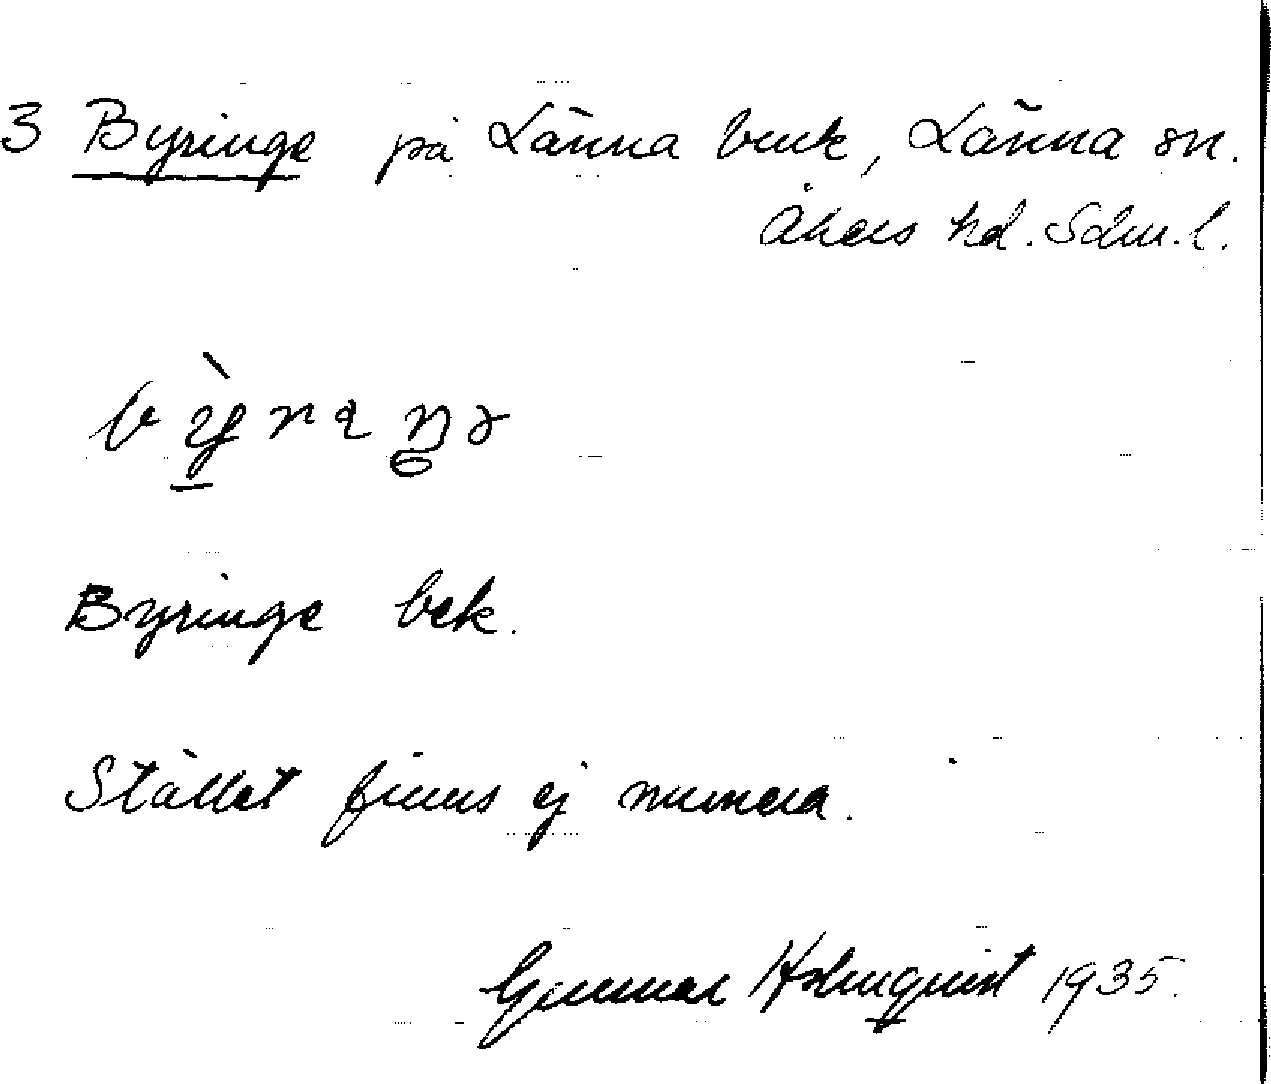 3 Byringe på Länna bruk, Länna sn.
Åkers hd. Sdm. l.
Byringe bek.
Stället finns ej numera.
Gunnar Holmquist 1935.